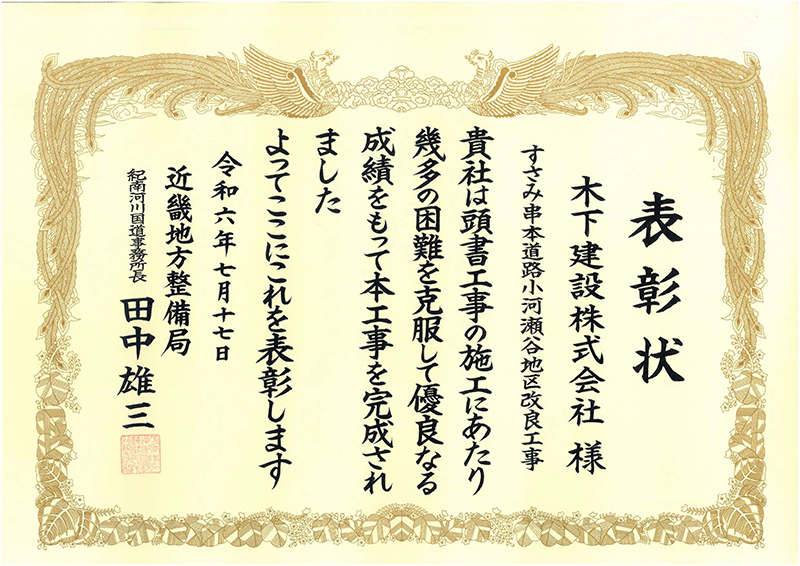 表彰状
木下建設株式会社 様
すさみ串本道路小河瀬谷地区改良工事
貴社は頭書工事の施工にあたり
幾多の困難を克服して優良なる
成績をもって本工事を完成され
ました
よってここにこれを表彰します
令和六年七月十七日
近畿地方整備局
紀南河川国道事務所長 田中雄三